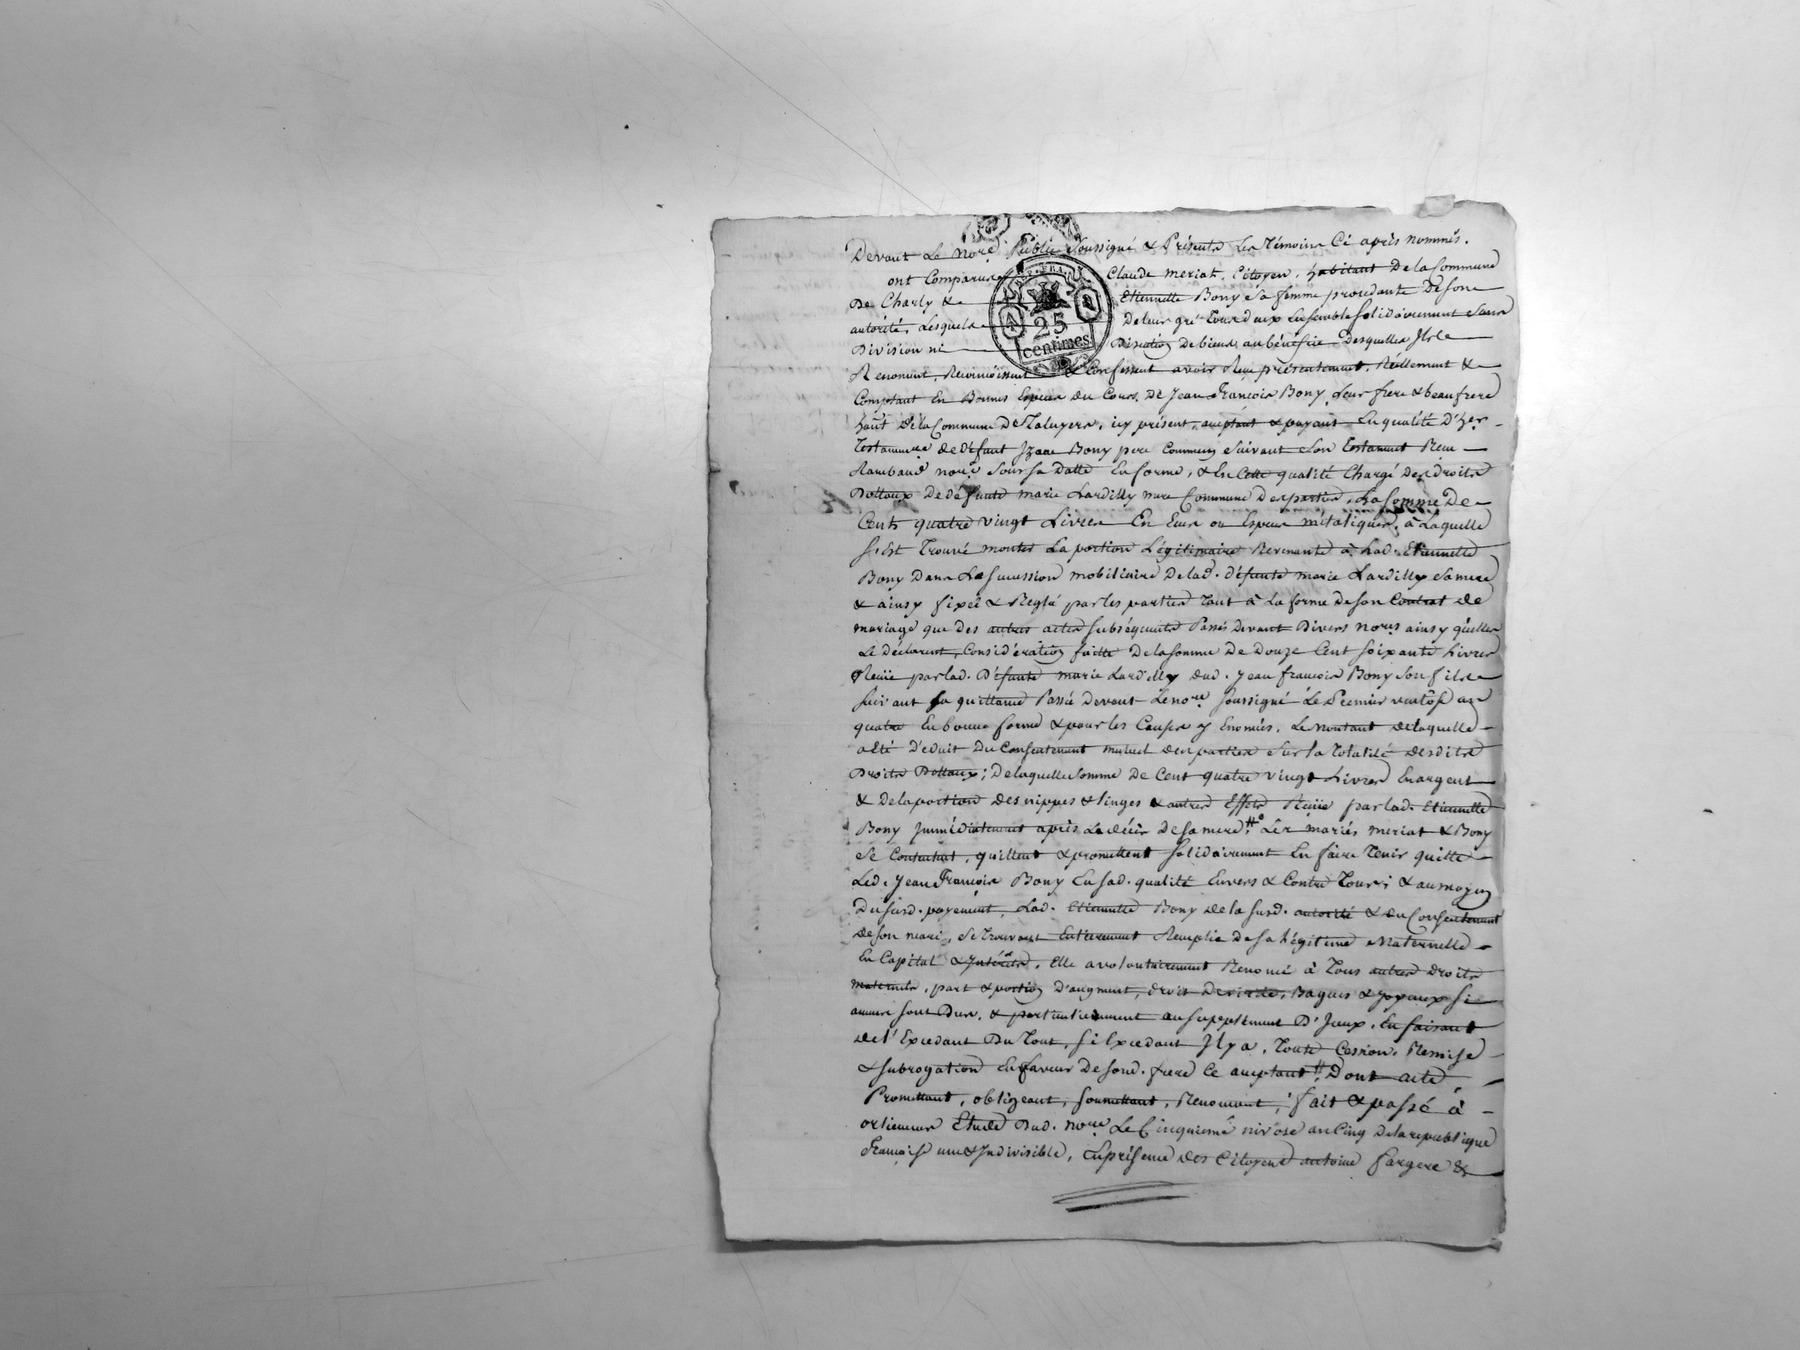 Devant Le Nore Public Soussigné & Présents Les Témoins Ci après nommés.
ont Comparus Claude meriat, Citoyen, habitant De la Commune
De Charly & Etiennette Bony Sa femme procedante De Son
autorité, Lesquels De leur gré Tous Deux Ensemble Solidairement Sans
Division ni De biens, au bénéfice Desquelles Ils
Renoncent, Reconnoissent & Confessent avoir Reçu présentement, Réellement &
Comptant En Bonnes Especes du Cours, De Jean François Bony, Leur frere & beaufrere
hañt De la Commune De Taluyers, icy présent, acceptant & payant En qualité D'her
Testamre de défunt Izaac Bony pere Commun Suivant Son Testament Reçu
Rambaud nore Sous Sa Datte En forme, & En Cette qualité Chargé Des Droits
Dottaux De défunte marie Lardilly mere Commune Des parties, La Somme De
Cent quatre vingt Livres En Ecus ou Especes métaliques, à Laquelle
S'est Trouvé monter La portion Légitimaire Revenante à Lad. Etiennette
Bony Dans La Succession mobiliaire De lad. défunte marie Lardilly Sa mere
& ainsy fixée & Reglé par les parties Tant à La forme de Son Contrat de
mariage que des autres actes Subséquents Passés Devant Divers nores ainsy qu'elles
Le déclarent, Considération faitte De la Somme De Douze Cent Soixante Livres
Reçüe par lad. Défunte marie Lardilly dud. Jean françois Bony Son fils
Suivant Sa quittance Passée devant Le nore Soussigné Le Premier ventôse an
quatre En bonne forme & pour les Causes y Enoncées, Le montant de laquelle
a Eté déduit Du Consentement mutuel des parties Sur la Totalité desdits
Droits Dottaux; De laquelle Somme De Cent quatre vingt Livres En argent
& De la portion des nippes & Linges & autres Effets Reçüe par lad. Etiennette
Bony Immédiatement après Le décès De Sa mere, Les mariés meriat & Bony
Se Contentent, quittent & promettent Solidairement En faire Tenir quitte
Led. Jean François Bony En Sad. qualité Envers & Contre Tous; & au moyen
Du Susd. payement, Lad. Etiennette Bony De la Susd. autorité & du Consentement
De Son mari, Se Trouvant Entierement Remplie De Sa Légitime Maternelle
En Capital & Intérêts, Elle a volontairement Renoncé à Tous autres Droits
maternels, part & portion D'augment, droit De virile, Bagues & Joyaux Si
aucuns Sont Dus, & particulierement au Supplément D'Iceux, En faisant
de l'Excedant Du Tout, Si Excedant Il y a, Toute Cession, Remise
& Subrogation En faveur De Sond. frere Ce acceptant; Dont acte
Promettant, obligeant, Soumettant, Renonçant, fait & passé à
orlienas Etude Dud. nore Le Cinquieme nivôse an Cinq De la republique
Françoise une & Indivisible, En présence des Citoyens antoine fargere &
25
centimes